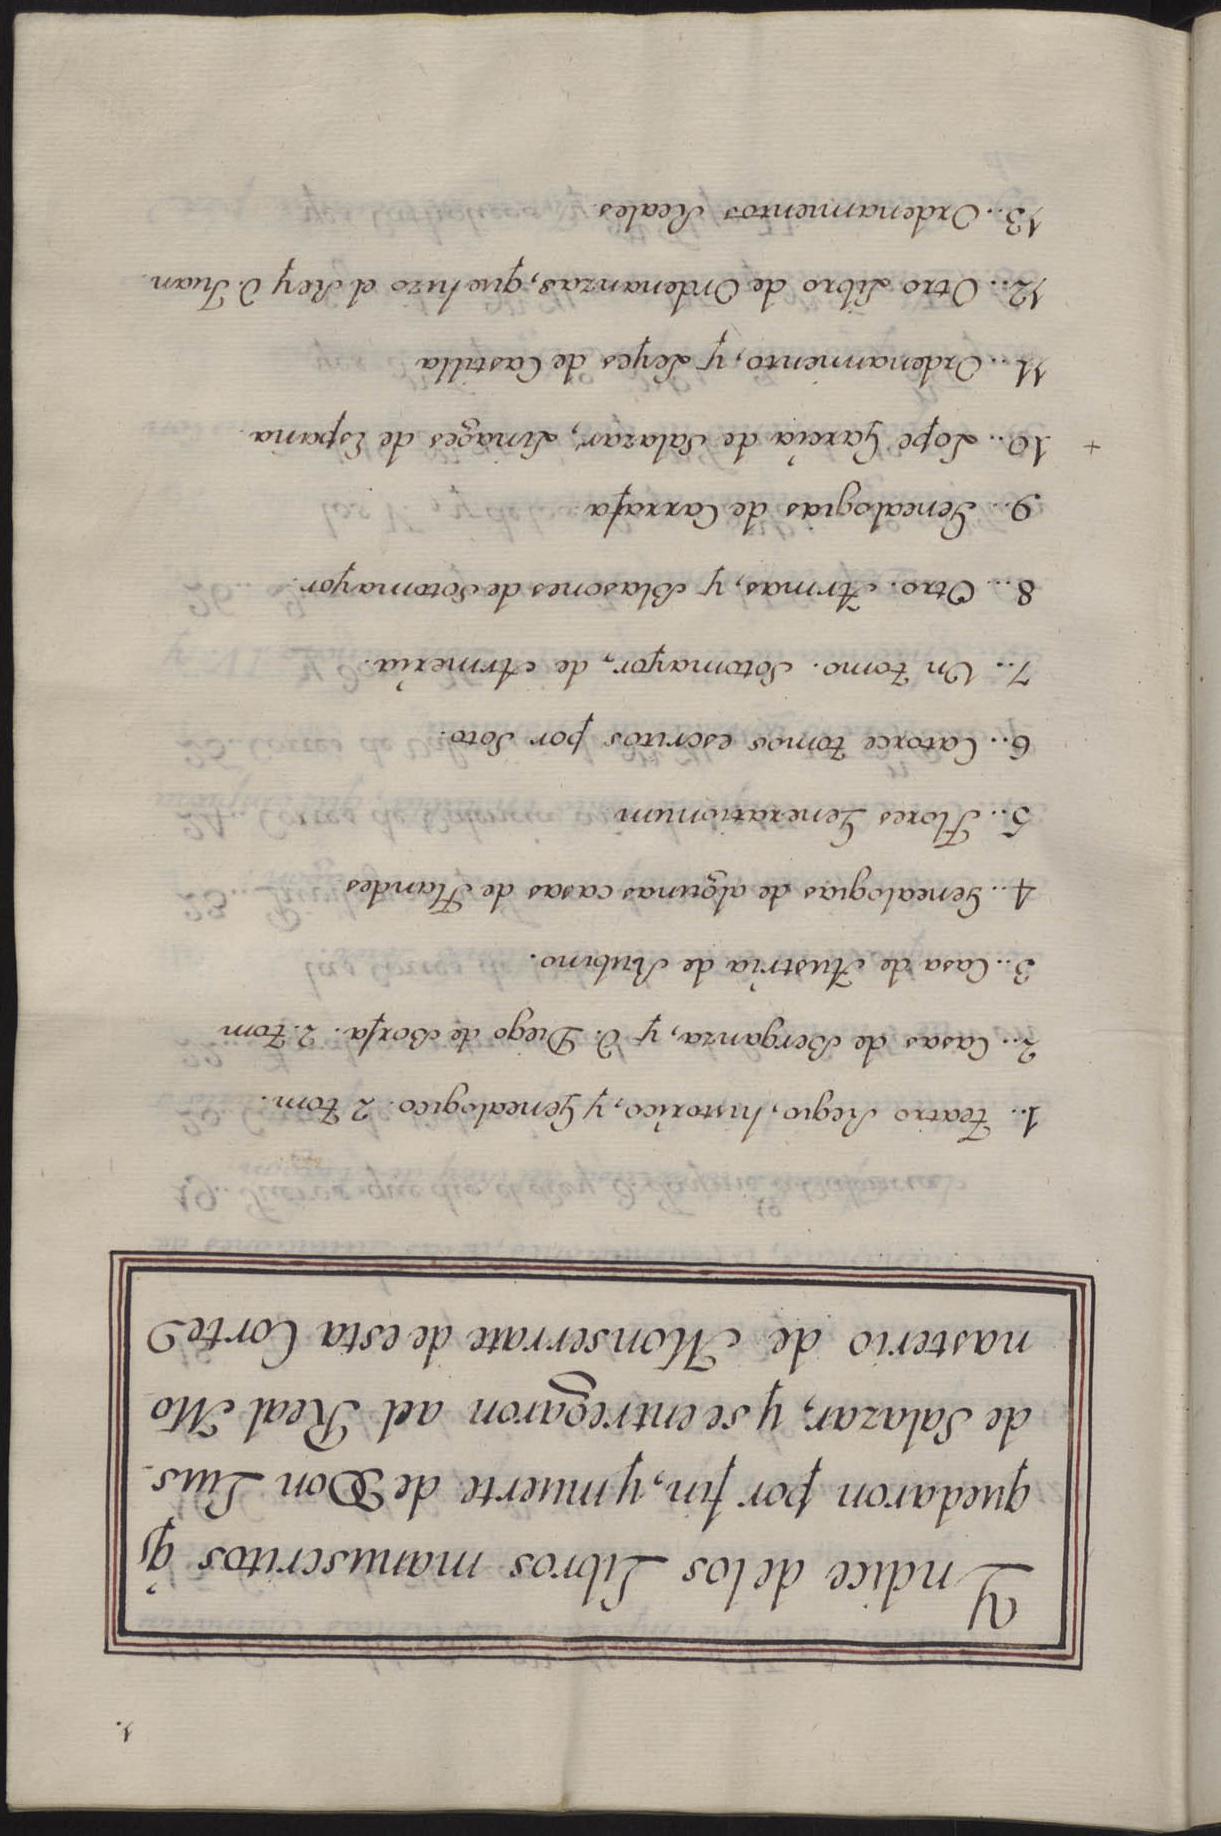 1.
Yndice delos Libros manuscritos q̃
quedaron por fin, y muerte de Don Luis
de Salazar, y se entregaron ael Real Mo
nasterio de Monserrate de esta Corte
1.. Teatro Regio, historico, y Genealogico. 2 tom.
2.. Casas de Berganza, y D. Diego de Borja. 2. tom
3.. Casa de Austria de Rubino.
4... Genealogias de algunas casas de Flandes
5... Flores Generationum
6... Catorce tomos escritos por Soto.
7.. Un tomo. Sotomayor, de Armeria.
8... Otro. Armas, y Blasones de Sotomayor.
9... Genealogias de Carrafa
+ 10.. Lope Garcia de Salazar, Linages de España
11... Ordenamiento, y Leyes de Castilla
12.. Otro Libro de Ordenanzas, que hizo el Rey D. Juan.
13.. Ordenamientos Reales